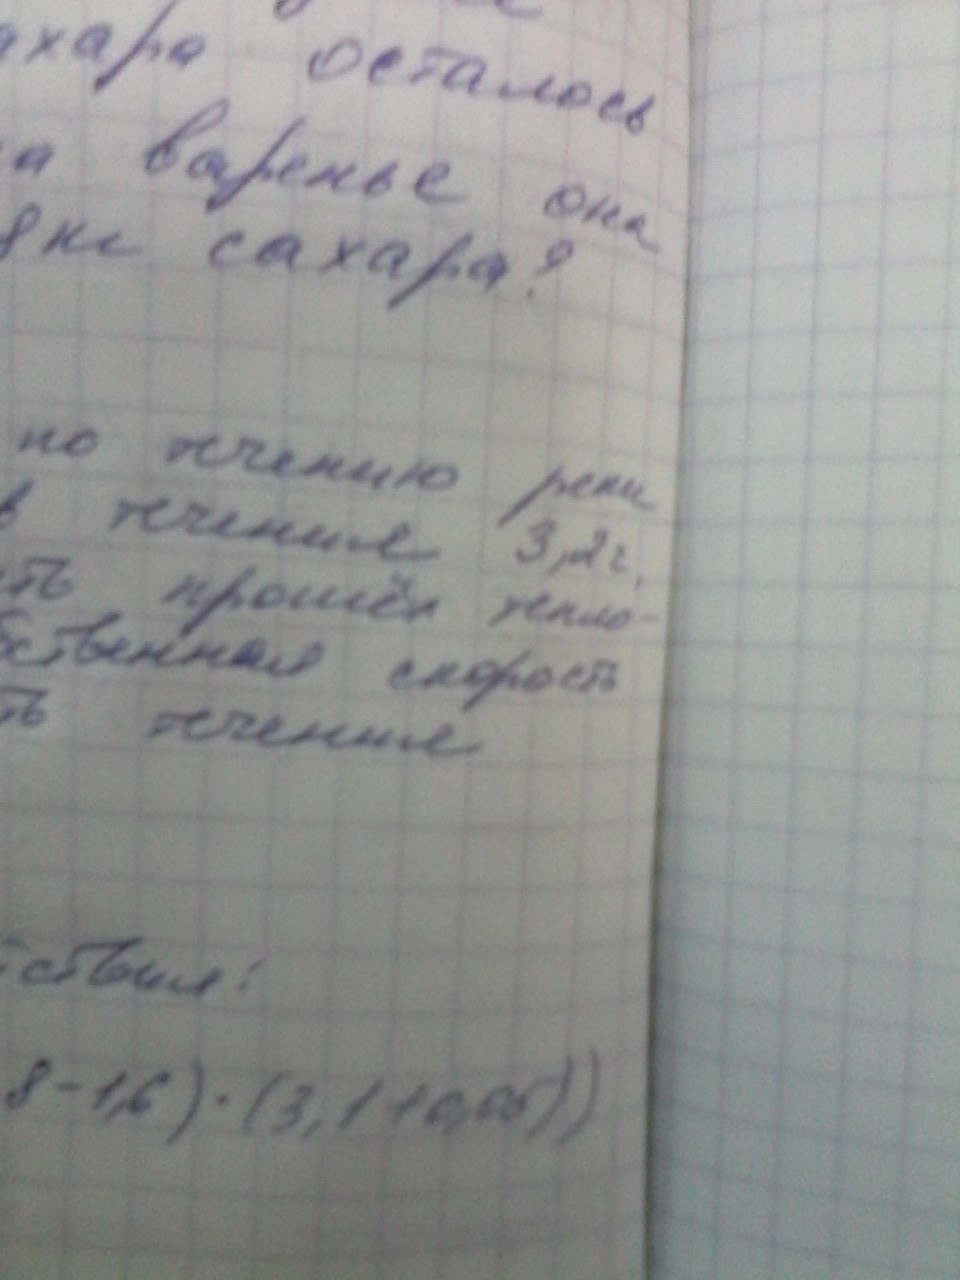 ахара осталось
на варенье она
8кг сахара?
по течению реки
в течения 3,2ч,
ть прошёл тепло-
бственная скорость
ть течения
ствия:
8-1,6)·(3,1+0,05))